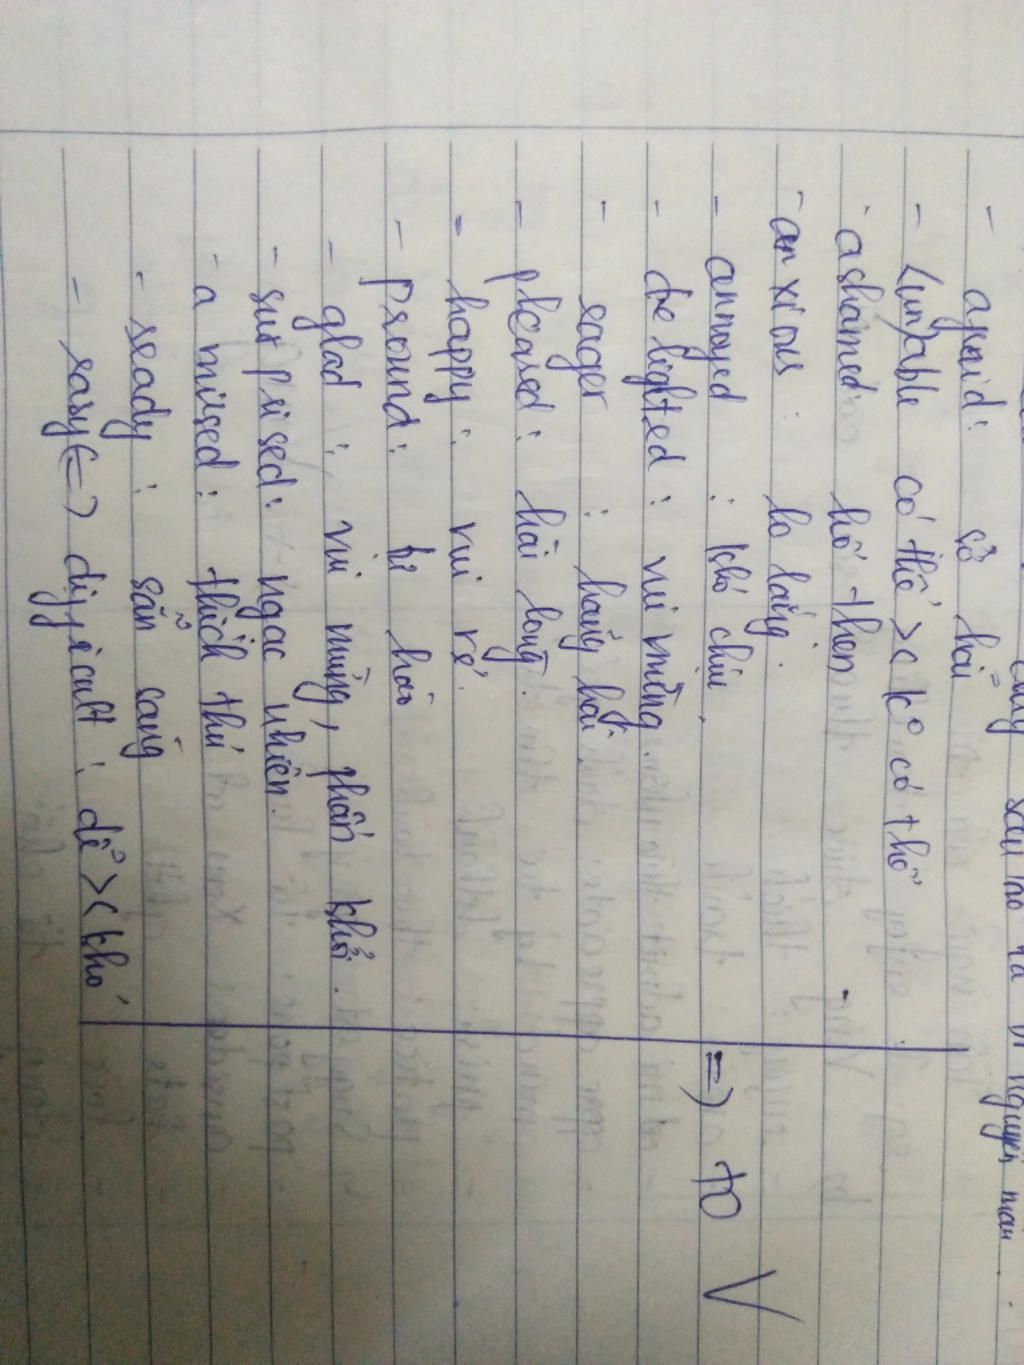 sau tao ta V nguyên mẫu.
- afraid: sợ hãi
- (un)able có thể >< k° có thể
- ashamed hổ then
- anxious : lo lắng.
- annoyed : khó chịu.
- delighted : vui mừng.
- eager : hăng hái
- pleased : hài lòng.
- happy : vui vẻ.
- pround : tự hào
- glad : vui mừng, phấn khởi.
- surprised : ngạc nhiên.
- amused : thích thú
- ready : sẵn sàng
- easy (=) difficult : dễ >< khó
=) to V